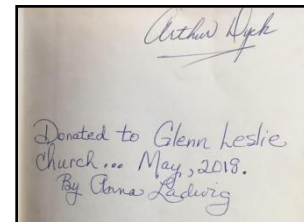 Arthur Dyck
Donated to Glenn Leslie
Church... May, 2018.
By Anna Ladwig